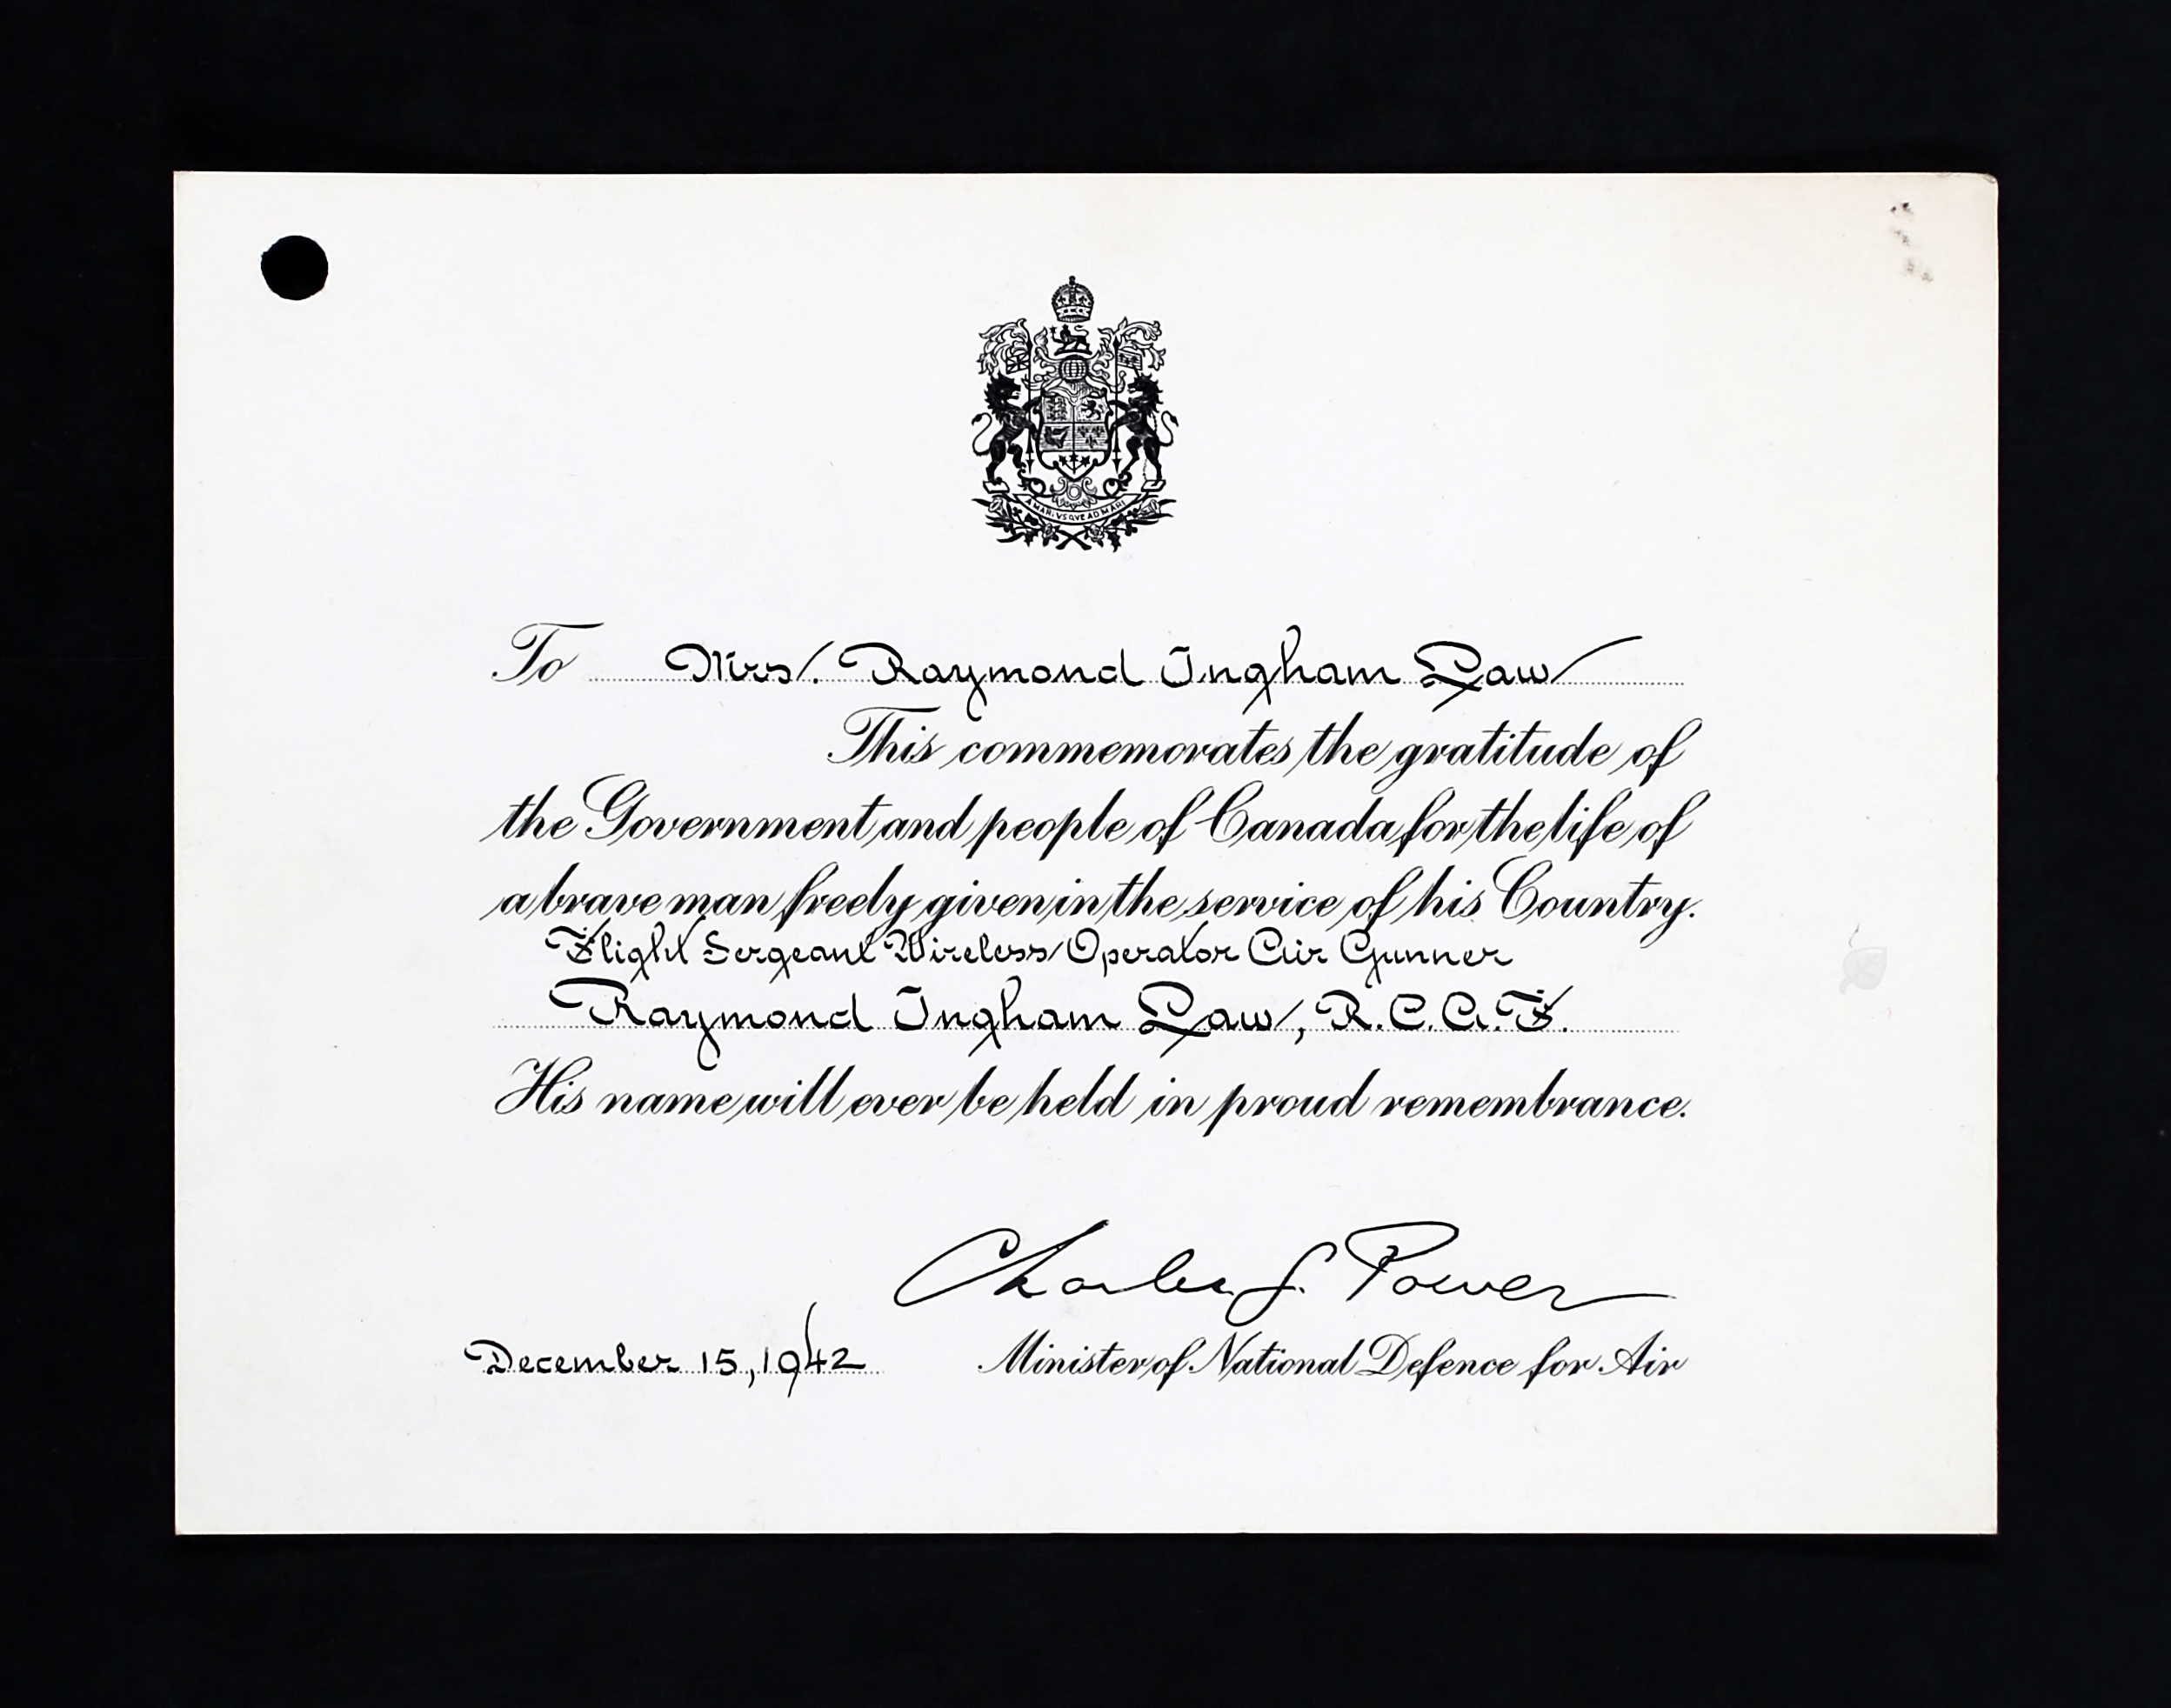 A MARI VSQVE AD MARI
To Mrs. Raymond Ingham Law
This commemorates the gratitude of
the Government and people of Canada for the life of
a brave man freely given in the service of his Country.
Flight Sergeant Wireless Operator Air Gunner
Raymond Ingham Law, R.C.A.F.
His name will ever be held in proud remembrance.
Charles G. Power
December 15, 1942 Minister of National Defence for Air